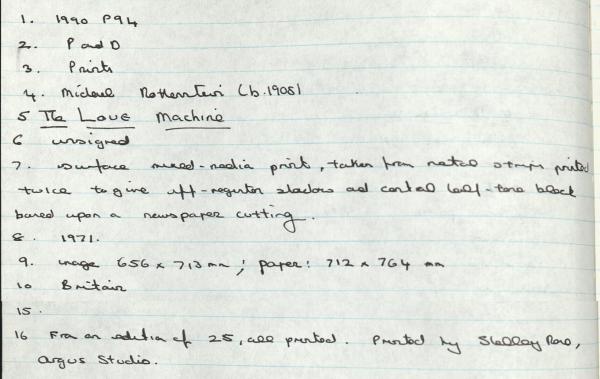 1. 1990 P94
2. P and D
3. Prints
4. Michael Rothenstein (b.1908)
5 The Love Machine
6 unsigned
7. surface mixed-media print, taken from metal strips printed
twice to give off-register shadows and central half-tone block
based upon a newspaper cutting.
8. 1971.
9. image 656 x 713 mm; paper: 712 x 764 mm
10 Britain
15.
16 From an edition of 25, all printed. Printed by Shelley Rose,
Argus Studio.